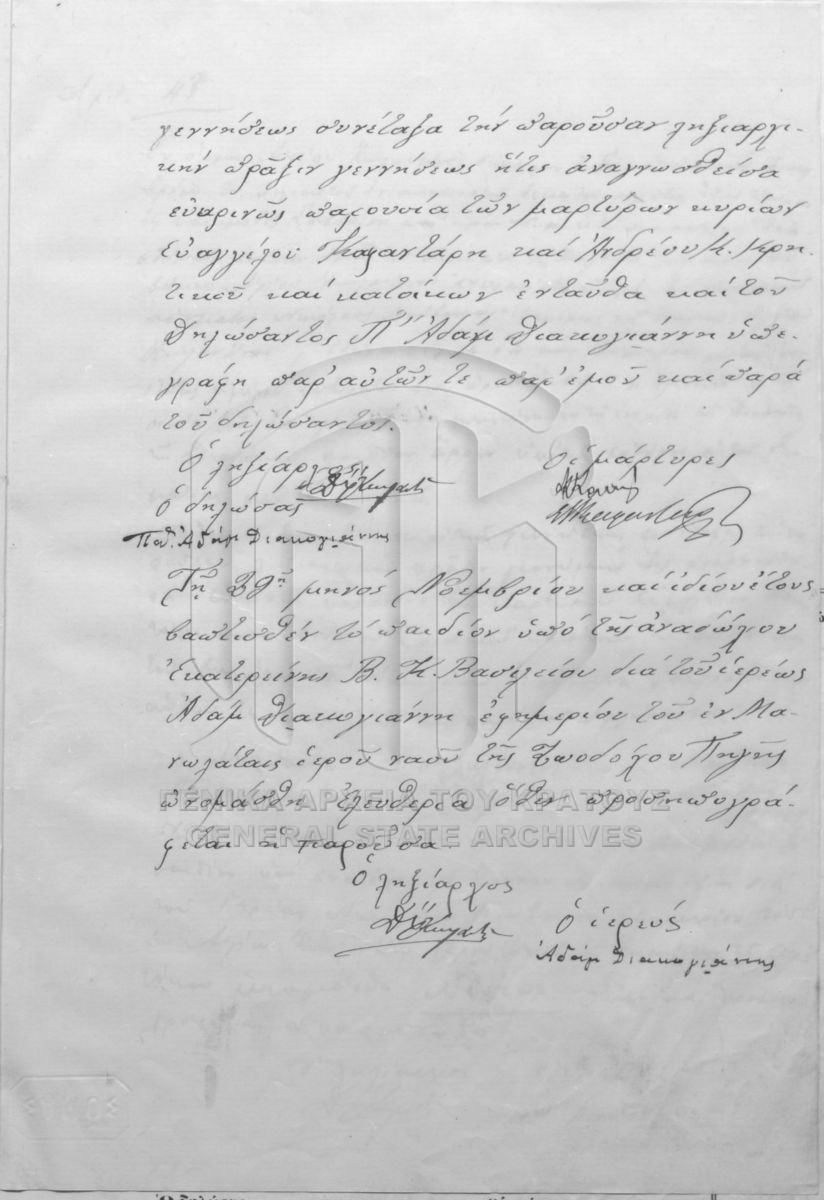 γεννήσεως συνέταξα τήν παροῦσαν ληξιαρχι-
κήν πρᾶξιν γεννήσεως ἥτις ἀναγνωσθεῖσα
εὐκρινῶς παρουσίᾳ τῶν μαρτύρων κυρίων
Εὐαγγέλου Καλαντάρη καί Ἀνδρέου Κ. Κρη-
τικοῦ καί κατοίκων ἐνταῦθα καί τοῦ
δηλώσαντος Π'' Ἀδάμ Διακογιάννη ὑπε-
γράφη παρ' αὐτῶν τε παρ' ἐμοῦ καί παρά
τοῦ δηλώσαντος.
Ὁ ληξίαρχος Οἱ μάρτυρες
Ὁ δηλώσας
Παπ. Ἀδάμ Διακογιάννης
Τῇ 29ῃ μηνός Νοεμβρίου καί ἰδίου ἔτους
βαπτισθέν τό παιδίον ὑπό τῆς ἀναδόχου
Ἐκατερίνης Β. Κ. Βασιλείου διά τοῦ ἱερέως
Ἀδάμ Διακογιάννη ἐφημερίου τοῦ ἐν Μα-
νωλάταις ἱεροῦ ναοῦ τῆς Ζωοδόχου Πηγῆς
ὠνομάσθη Ἐλευθερία ὅθεν προσυπογρά-
φεται ἡ παροῦσα.
ΓΕΝΙΚΑ ΑΡΧΕΙΑ ΤΟΥ ΚΡΑΤΟΥΣ
GENERAL STATE ARCHIVES
Ὁ ληξίαρχος
Ὁ ἱερεύς
Ἀδάμ Διακογιάννης